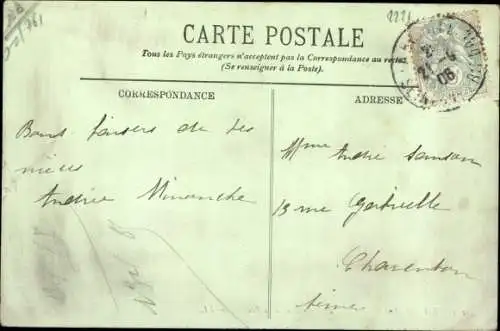 CARTE POSTALE
Tous les Pays étrangers n'acceptent pas la Correspondance au recto
(Se renseigner à la Poste).
CORRESPONDANCE
ADRESSE
Bons baisers de tes
nièces
Andrée Minanche
Mme André Samson
13 rue Gabrielle
Charenton
Seine